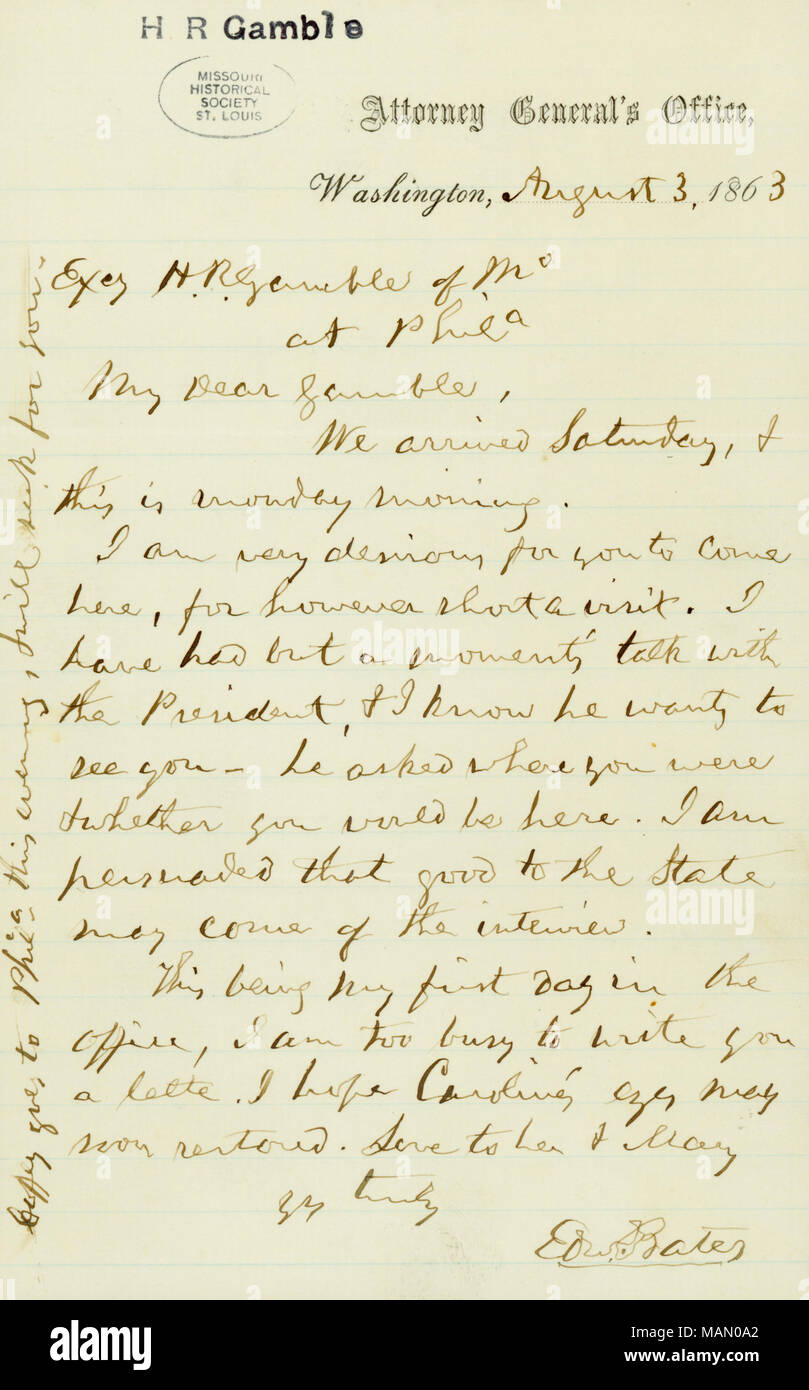 H R Gamble
MISSOURI
HISTORICAL
SOCIETY
ST. LOUIS
Attorney General's Office,
Washington, August 3, 1863
Excy H. R. Gamble of Mo
at Phila
My Dear Gamble,
We arrived Saturday, &
this is monday morning.
I am very desirous for you to come
here, for however short a visit. I
have had but a moment's talk with
the President, & I know he wants to
see you – he asked where you were
& whether you would be here. I am
persuaded that good to the State
may come of the interview.
This being my first day in the
office, I am too busy to write you
a lette. I hope Caroline's eyes may
soon restored. Love to her & Mary
yr truly
Edw. Bates
goes to Phila this evening, & will seek for you –
alamy
alamy stock photo
MAN0A2
www.alamy.com